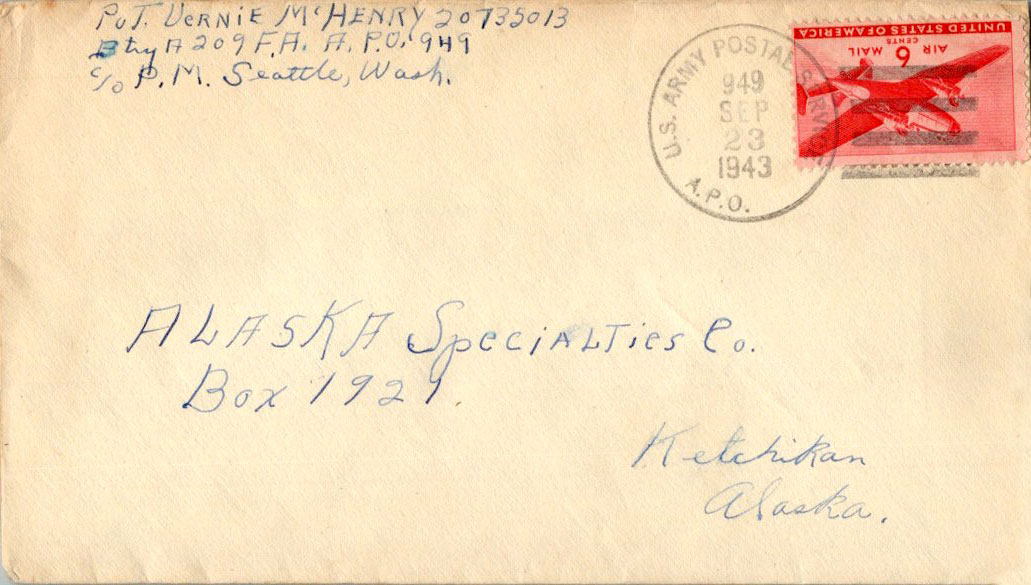 PvT. VERNIE McHENRY 20735013
Btry A 209 F.A. A.P.O. 949
c/o P.M. Seattle, Wash.
U.S. ARMY POSTAL SERVICE
949
SEP
23
1943
A.P.O.
UNITED STATES OF AMERICA
6 CENTS
AIR MAIL
ALASKA Specialties Co.
Box 1921.
Ketchikan
Alaska.